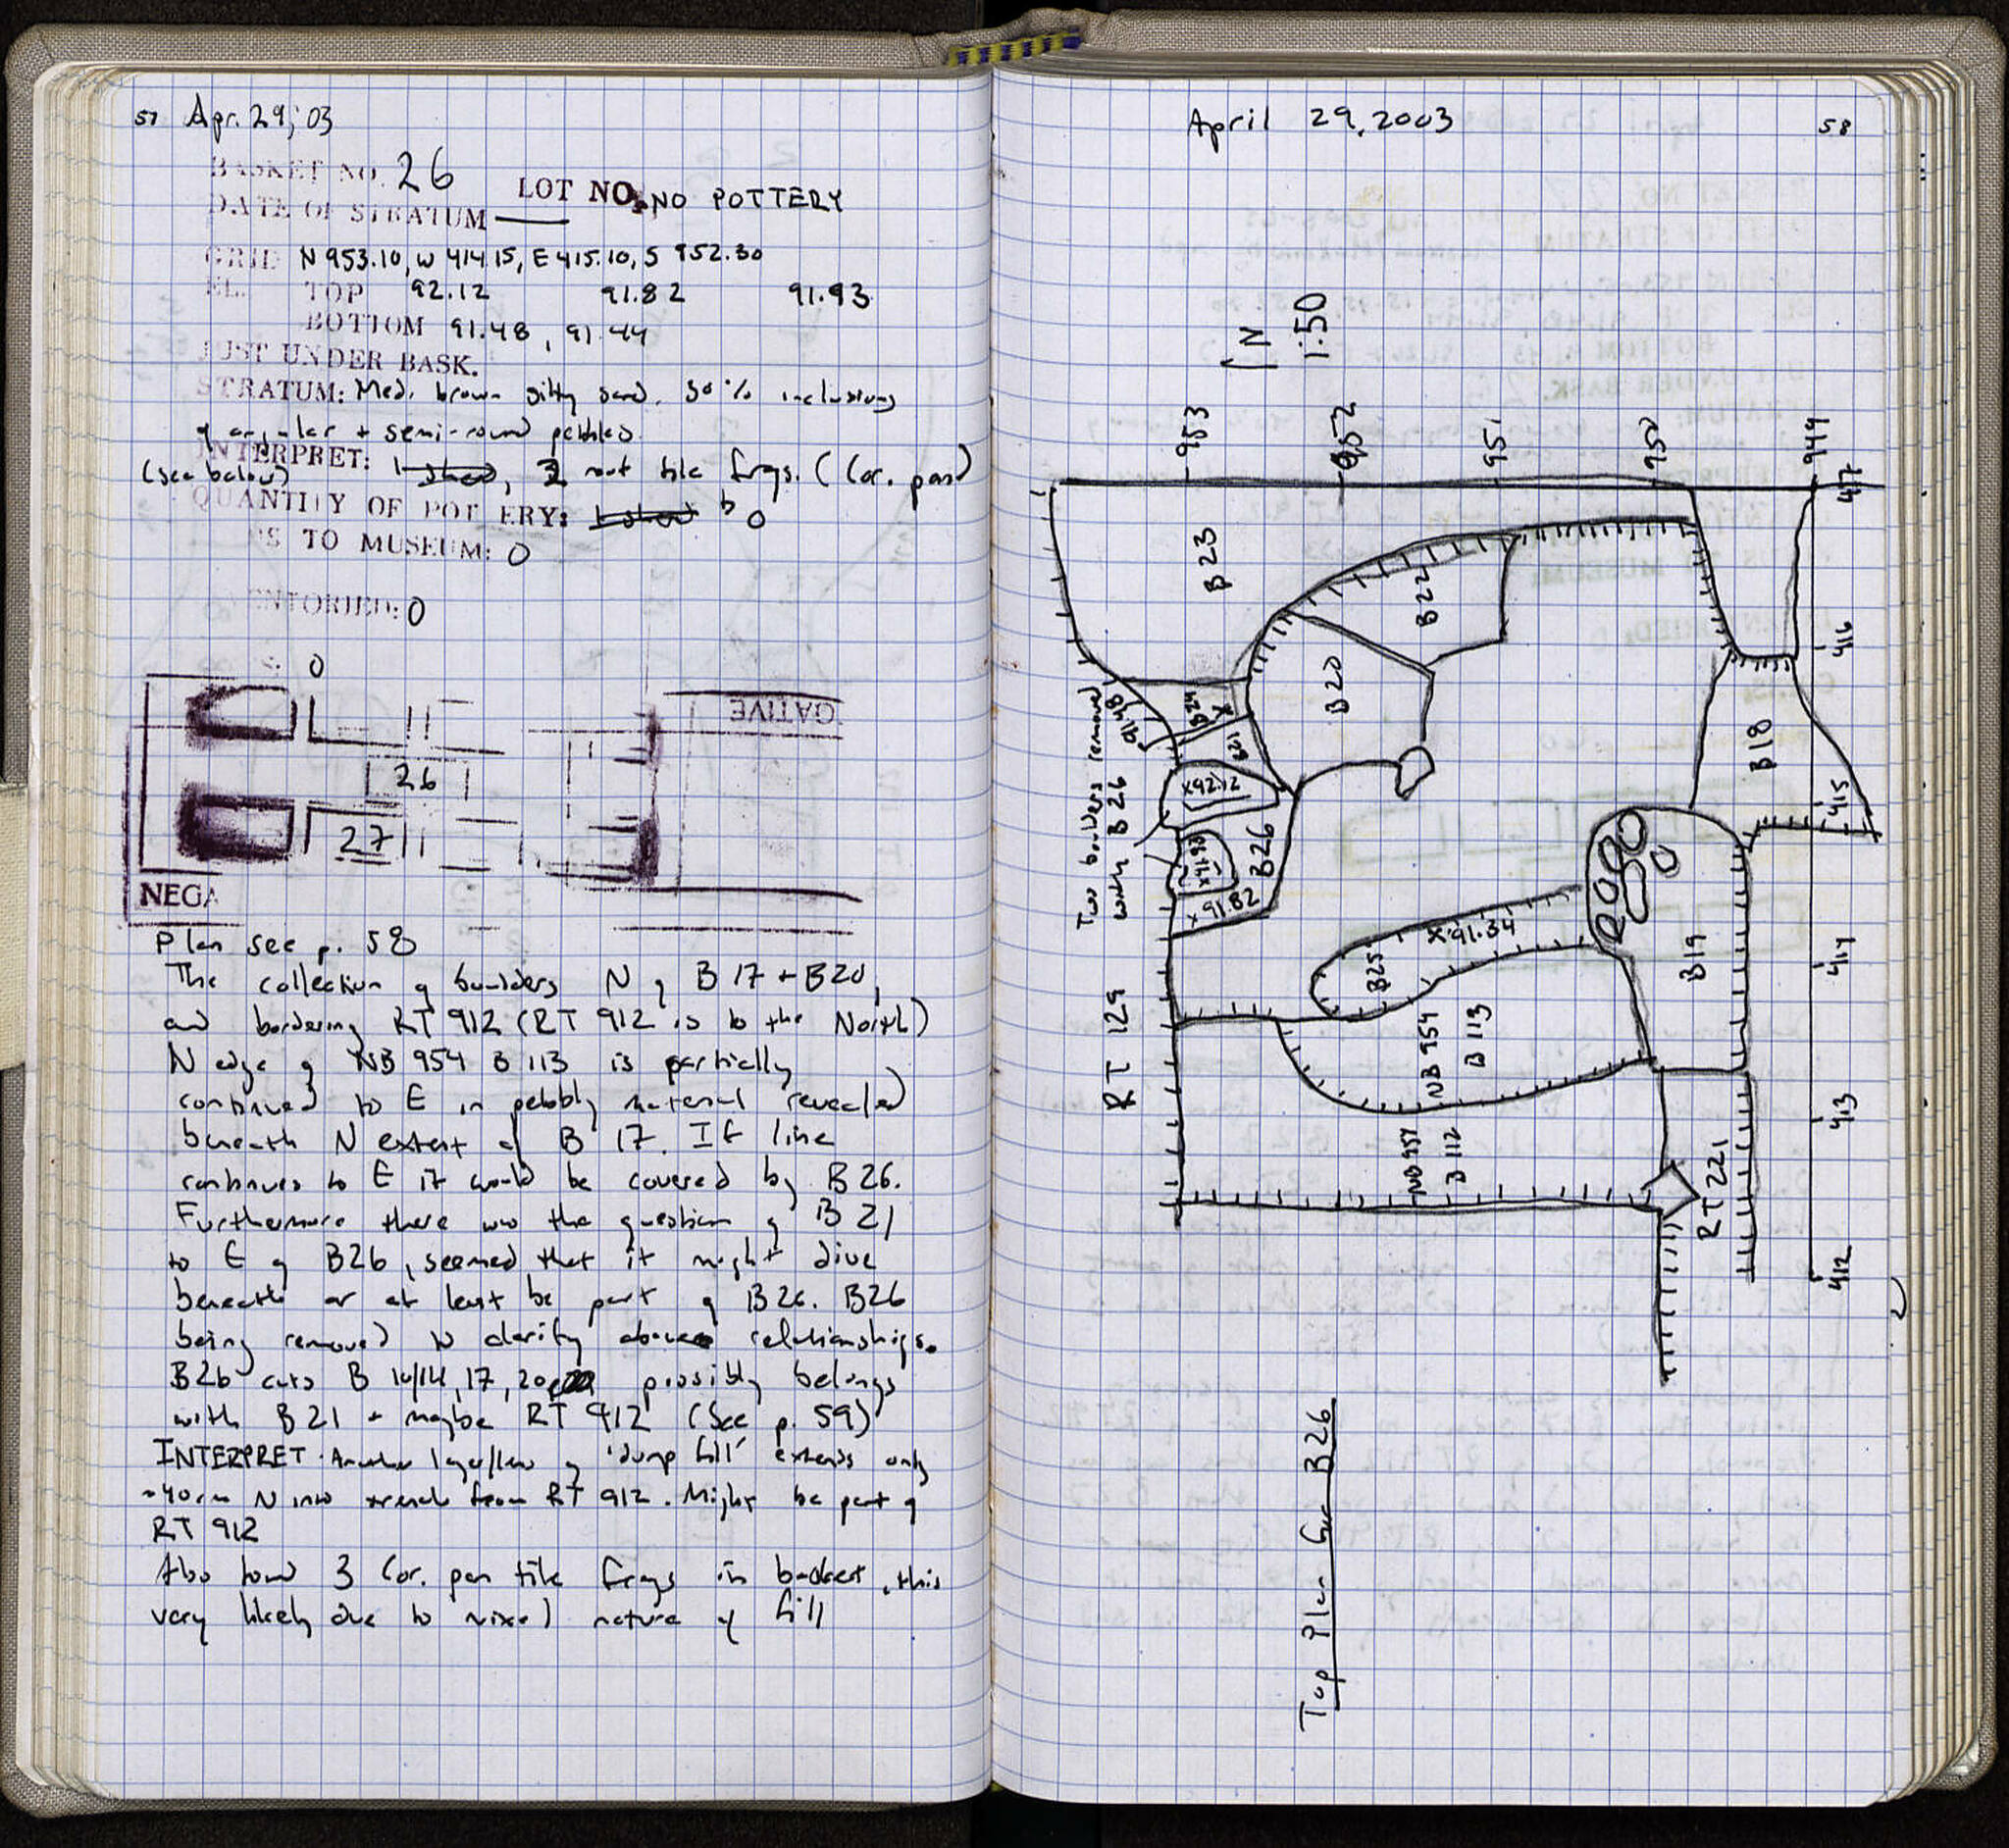 57 Apr. 29, '03
BASKET NO. 26
LOT NO. NO POTTERY
DATE OF STRATUM
GRID N 953.10, W 414.15, E 415.10, S 952.30
EL. TOP 92.12 91.82 91.93
BOTTOM 91.48, 91.44
JUST UNDER BASK.
STRATUM: Med. brown silty sand. 30% inclusions
of angular + semi-round pebbles
INTERPRET: 3 roof tile frags. (Cor. pan)
(see below)
QUANTITY OF POTTERY: 0
TO MUSEUM: 0
ENTORIED: 0
0
GATIVE
26
27
NEGA
Plan see p. 58
The collection of boulders N of B 17 + B20,
and bordering RT 912 (RT 912 is to the North)
N edge of NB 954 B 113 is partially
continued to E in pebbly material revealed
beneath N extent of B 17. If line
continues to E it would be covered by B 26.
Furthermore there was the question of B 21
to E of B26, seemed that it might dive
beneath or at least be part of B 26. B26
being removed to clarify above relationships.
B26 cuts B 10/14, 17, 20 possibly belongs
with B21 + maybe RT 912 (See p. 59)
INTERPRET. Another layer/lens of 'dump fill' extends only
~40cm N into trench from RT 912. Might be part of
RT 912
Also found 3 Cor. pan tile frags in basket, this
very likely due to mixed nature of fill
April 29, 2003 58
N
1:50
953 952 951 950 949
417
416
415
414
413
412
B23
B22
B20
B24
X
91.48
B21
B18
Two boulders removed
with B26
X92.12
X91.93
X91.82
B26
X91.34
B25
B19
RT 129
NB 954
B 113
NB 954
B 112
RT 221
Top Plan for B26